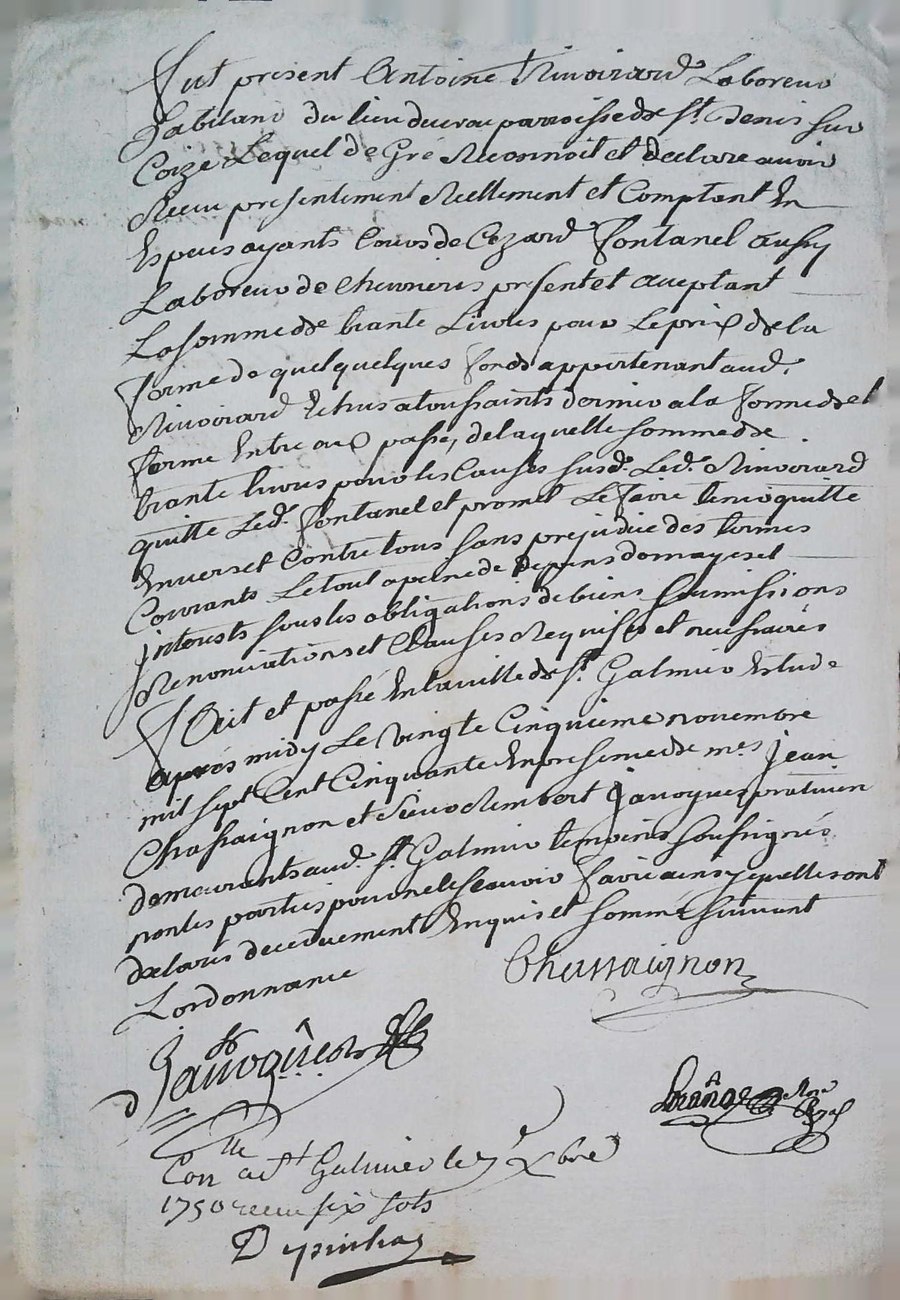 Fut present Antoine Rivoirard Laboreur
habitant du lieu du crau parroisse de St. Denis sur
Coize Lequel de Gré Reconnoit et declare avoir
Receu presentement Reellement et Comptant En
Especes ayants Cours de Cezard Fontanel aussy
Laboreur de Chevrieres present et acceptant
La somme de trante Livres pour Le prix de la
ferme de quelquelques fonds appartenant aud.
Rivoirard Echus a toussaints dernier a la forme de
ferme Entre eux passé, de laquelle somme de
trante livres pour les Causes susd. Led. Rivoirard
quitte Led. Fontanel et promet Le faire tenir quitte
Envers et Contre tous sans prejudice des termes
Courants Le tout a peine de depens domages et
interests sous les obligations de biens soumissions
Renonciations et Clauses Requises et necessaires
Fait et passé En la ville de St. Galmier Estude
apres midy Le vingt Cinquieme novembre
mil sept Cent Cinquante En presence de mes jean
Chassaignon et sieur Rembert Javogues praticien
demeurants aud. St. Galmier temoins soussignés
non les parties pour ne le scavoir faire ainsy quelles ont
declaré de ce duement Enquis et sommé suivant
Lordonnance
Chassaignon
Javogues
Conlle a St. Galmier le 7e Xbre
1750 receu six sols